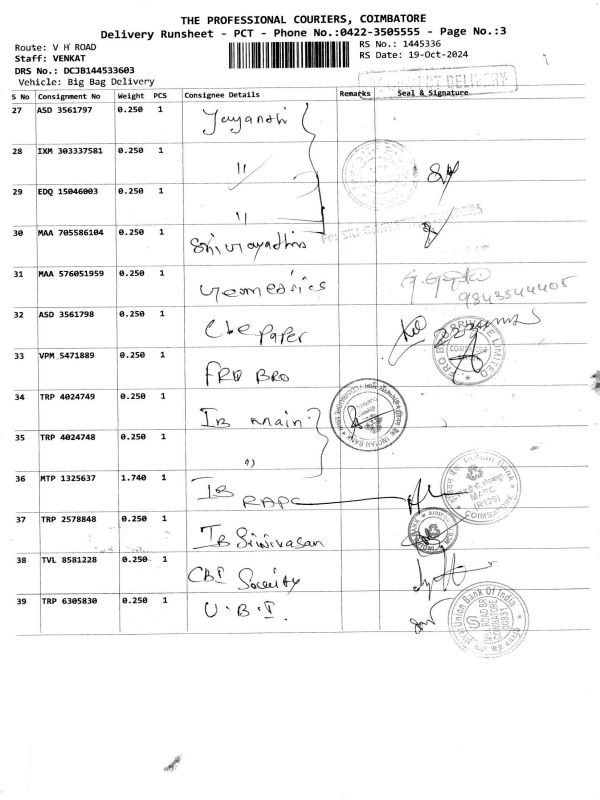 THE PROFESSIONAL COURIERS, COIMBATORE
Delivery Runsheet - PCT - Phone No.:0422-3505555 - Page No.:3
Route: V H ROAD
RS No.: 1445336
Staff: VENKAT
RS Date: 19-Oct-2024
DRS No.: DCJB144533603
Vehicle: Big Bag Delivery
DELIVERY
S No Consignment No Weight PCS Consignee Details Remarks Seal & Signature
27 ASD 3561797 0.250 1 Jayanthi
28 IXM 303337581 0.250 1 "
29 EDQ 15046003 0.250 1 "
30 MAA 705586104 0.250 1
31 MAA 576051959 0.250 1
9843344405
32 ASD 3561798 0.250 1 Cbe Paper
33 VPM 5471889 0.250 1 FRO BRO
34 TRP 4024749 0.250 1 IB main
INDIAN BANK
35 TRP 4024748 0.250 1 "
36 MTP 1325637 1.740 1 IB RAPC
Indian Bank
MAPC
(R129)
COIMBATORE
37 TRP 2578848 0.250 1 IB Srinivasan
38 TVL 8581228 0.250 1 CBI Society
39 TRP 6305830 0.250 1 U.B.I
Union Bank Of India
COIMBATORE